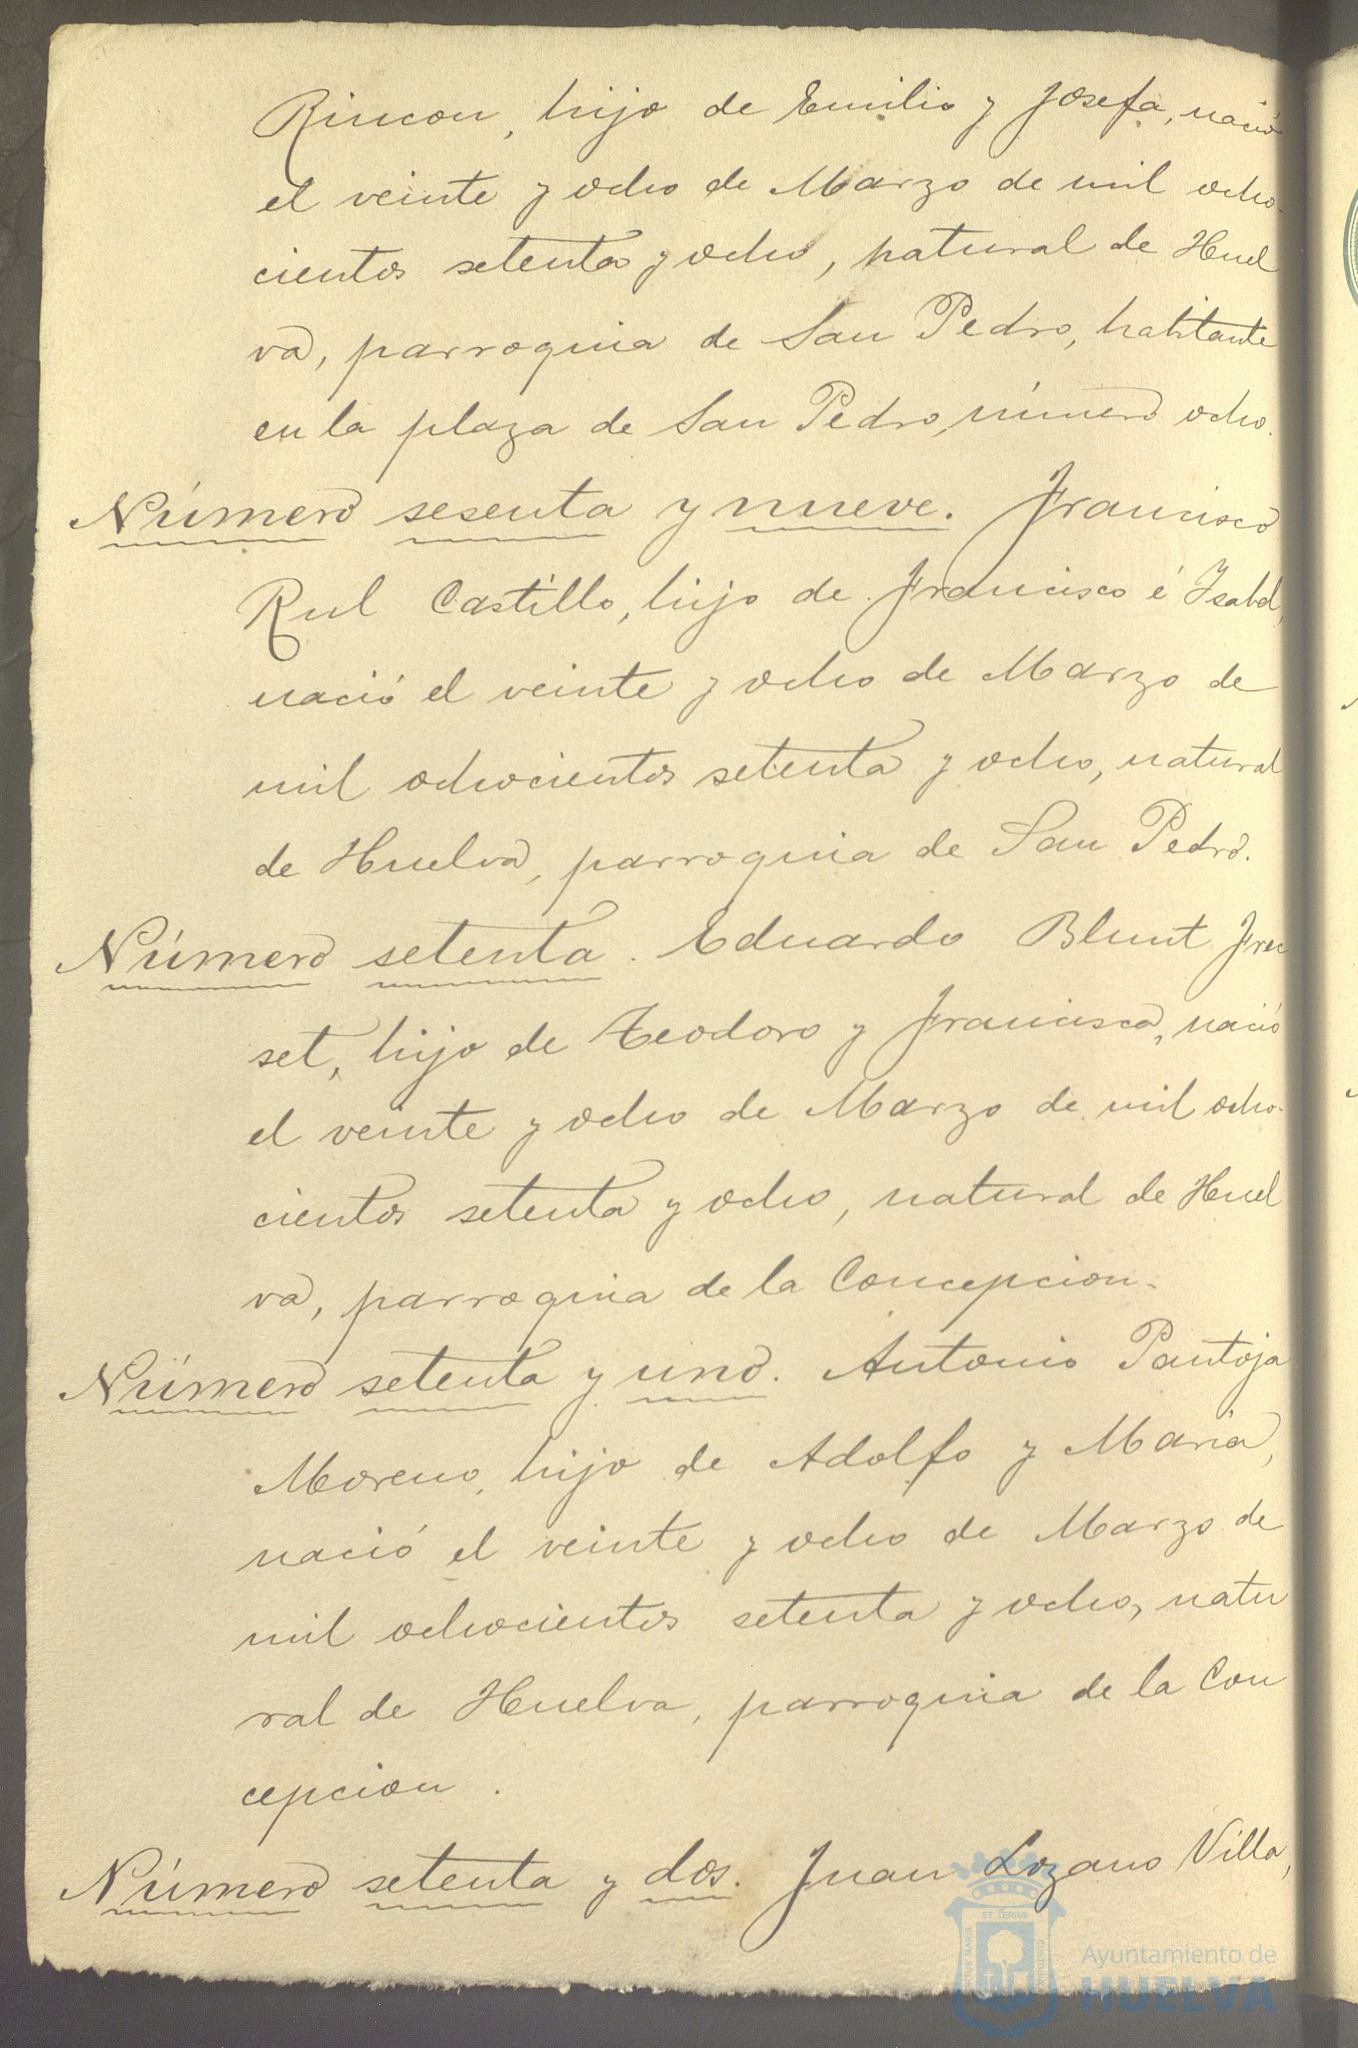 Rincon, hijo de Emilio y Josefa, nació
el veinte y ocho de Marzo de mil ocho-
cientos setenta y ocho, natural de Huel
va, parroquia de San Pedro, habitante
en la plaza de San Pedro, número ocho.
Número sesenta y nueve. Francisco
Rul Castillo, hijo de Francisco é Isabel,
nació el veinte y ocho de Marzo de
mil ochocientos setenta y ocho, natural
de Huelva, parroquia de San Pedro.
Número setenta. Eduardo Blunt
set, hijo de Teodoro y Francisca, nació
el veinte y ocho de Marzo de mil ocho-
cientos setenta y ocho, natural de Huel
va, parroquia de la Concepcion.
Número setenta y uno. Antonio Pantoja
Moreno, hijo de Adolfo y Maria,
nació el veinte y ocho de Marzo de
mil ochocientos setenta y ocho, natu
ral de Huelva, parroquia de la Con
cepcion.
Número setenta y dos. Juan Lozano Villa,
Ayuntamiento de
HUELVA